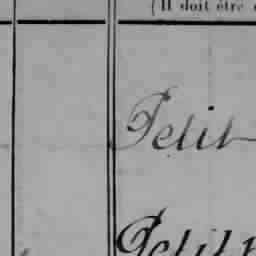 (Il doit être
Petit
Petit